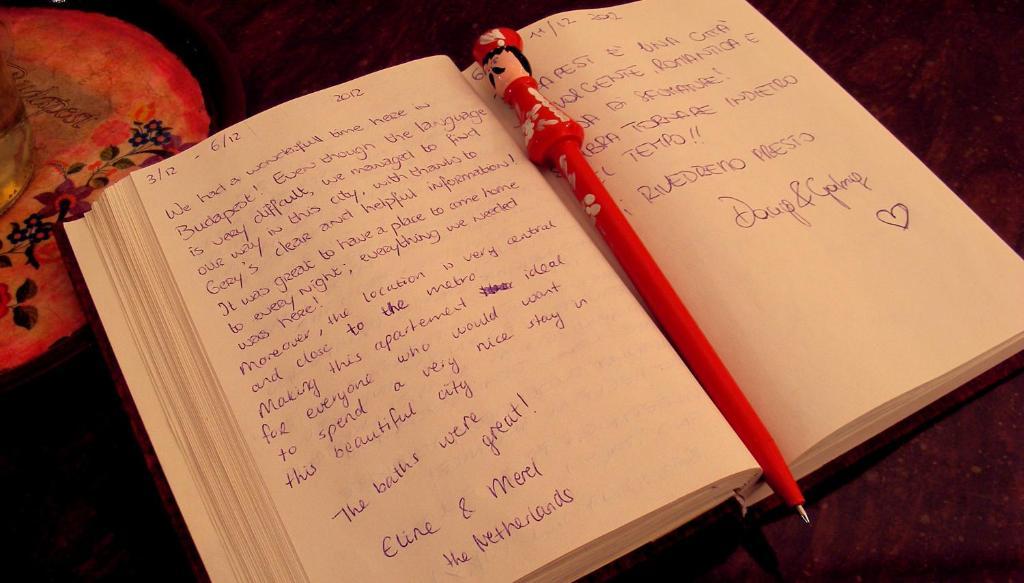 Budapest
3/12 - 6/12 2012
We had a wonderfull time here in
Budapest! Even though the language
is very difficult, we managed to find
our way in this city, with thanks to
Gery's clear and helpful information!
It was great to have a place to come home
to every night; everything we needed
was here!
Moreover, the location is very central
and close to the metro
Making this apartement ideal
for everyone who would want
to spend a very nice stay in
this beautiful city
The baths were
great!
Eline & Merel
the Netherlands
11/12 2012
APEST È UNA CITTÀ
VOLGENTE, ROMANTICA E
DA SFOGLIARE!
SEMBRA TORNARE INDIETRO
TEMPO!!
RIVEDREMO PRESTO